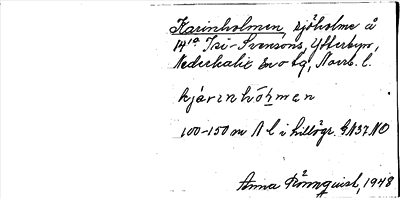 Karinholmen, sjöholme å
14 1a Tri-Svensons, Ytterbyn,
Nederkalix sn o tg, Norrb. l.
kjárinhöḻmen
100-150 m N l i hillögr. GN37 NO
Anna Rönnquist, 1948